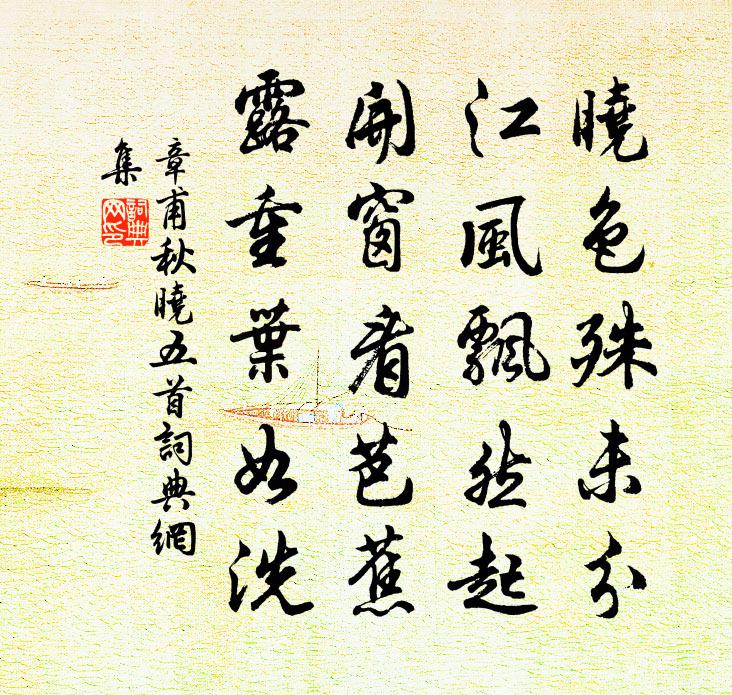 曉色殊未分
江風飄然起
開窗看芭蕉
露重葉如洗
章甫秋曉五首詞典網
集
詞典網印